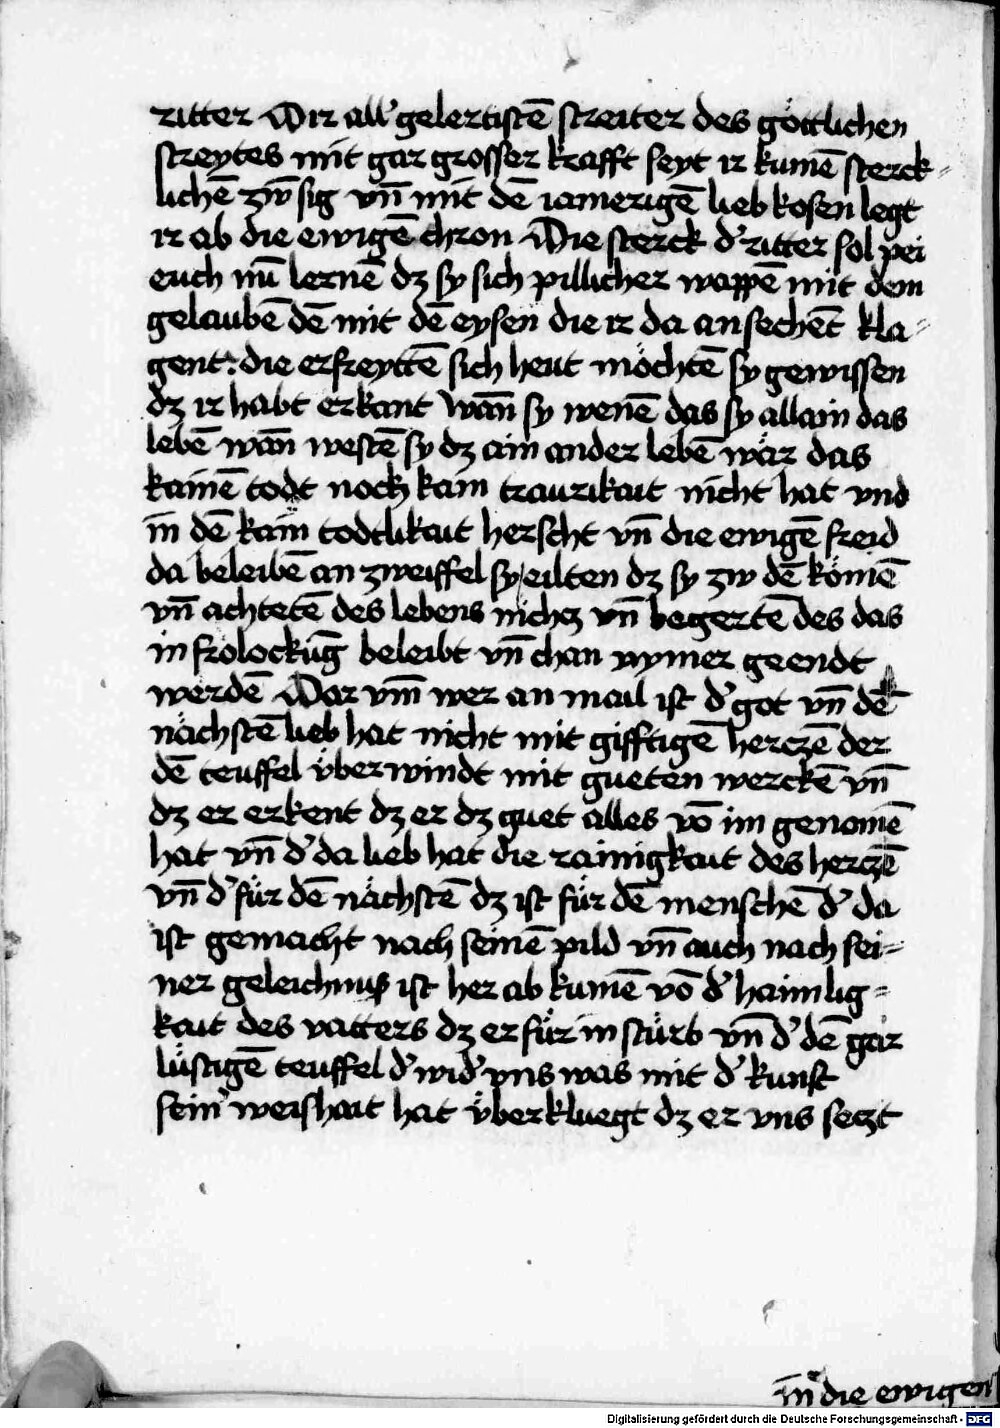 ritter O ir all' gelertistē streiter des göttlichen
streytes mit gar grosser krafft seyt ir kumē sterck-
lichē zw̄ sig vn̄ mit dē iamerigē lieb kosen legt
ir ab die ewigē chron Die sterck d' ritter sol pei
euch nū lernē dz sy sich pillicher wappē mit dem
gelaubē dē mit dē eysen die ir da ansechēt kla-
gent: die erfreyttē sich heut möchtē sy gewissen
dz ir habt erkant wān sy wenē das sy allain das
lebē wān westē sy dz ain ander lebē wär das
kainē todt noch kain traurikait nicht hat vnd
in dē kain todtlikait herscht vn̄ die ewigē freid
da beleibē an zweiffel sy eilten dz sy zw dē kömē
vn̄ achtetē des lebens nichcz vn̄ begertē des das
in frolockūg beleibt vn̄ chan nymer geendt
werdē Dar vm̄ wer an mail ist d' got vn̄ dē
nächstē lieb hat nicht mit gifftigē herczē der
dē teuffel überwindt mit gueten werckē vn̄
dz er erkent dz er dz guet alles vō im genomē
hat vn̄ d' da lieb hat die rainigkait des herczē
vn̄ d' für dē nächstē dz ist für dē menschē d' da
ist gemacht nach seinē pild vn̄ auch nach sei-
ner geleichnuß ist her ab kumē vō d' haimlig-
kait des vatters dz er für in stürb vn̄ d' dē gar
lüstigē teuffel d' wid' vns was mit d' kunst
sein' weishait hat überkluegt dz er vns seczt
in die ewigen
Digitalisierung gefördert durch die Deutsche Forschungsgemeinschaft - DFG